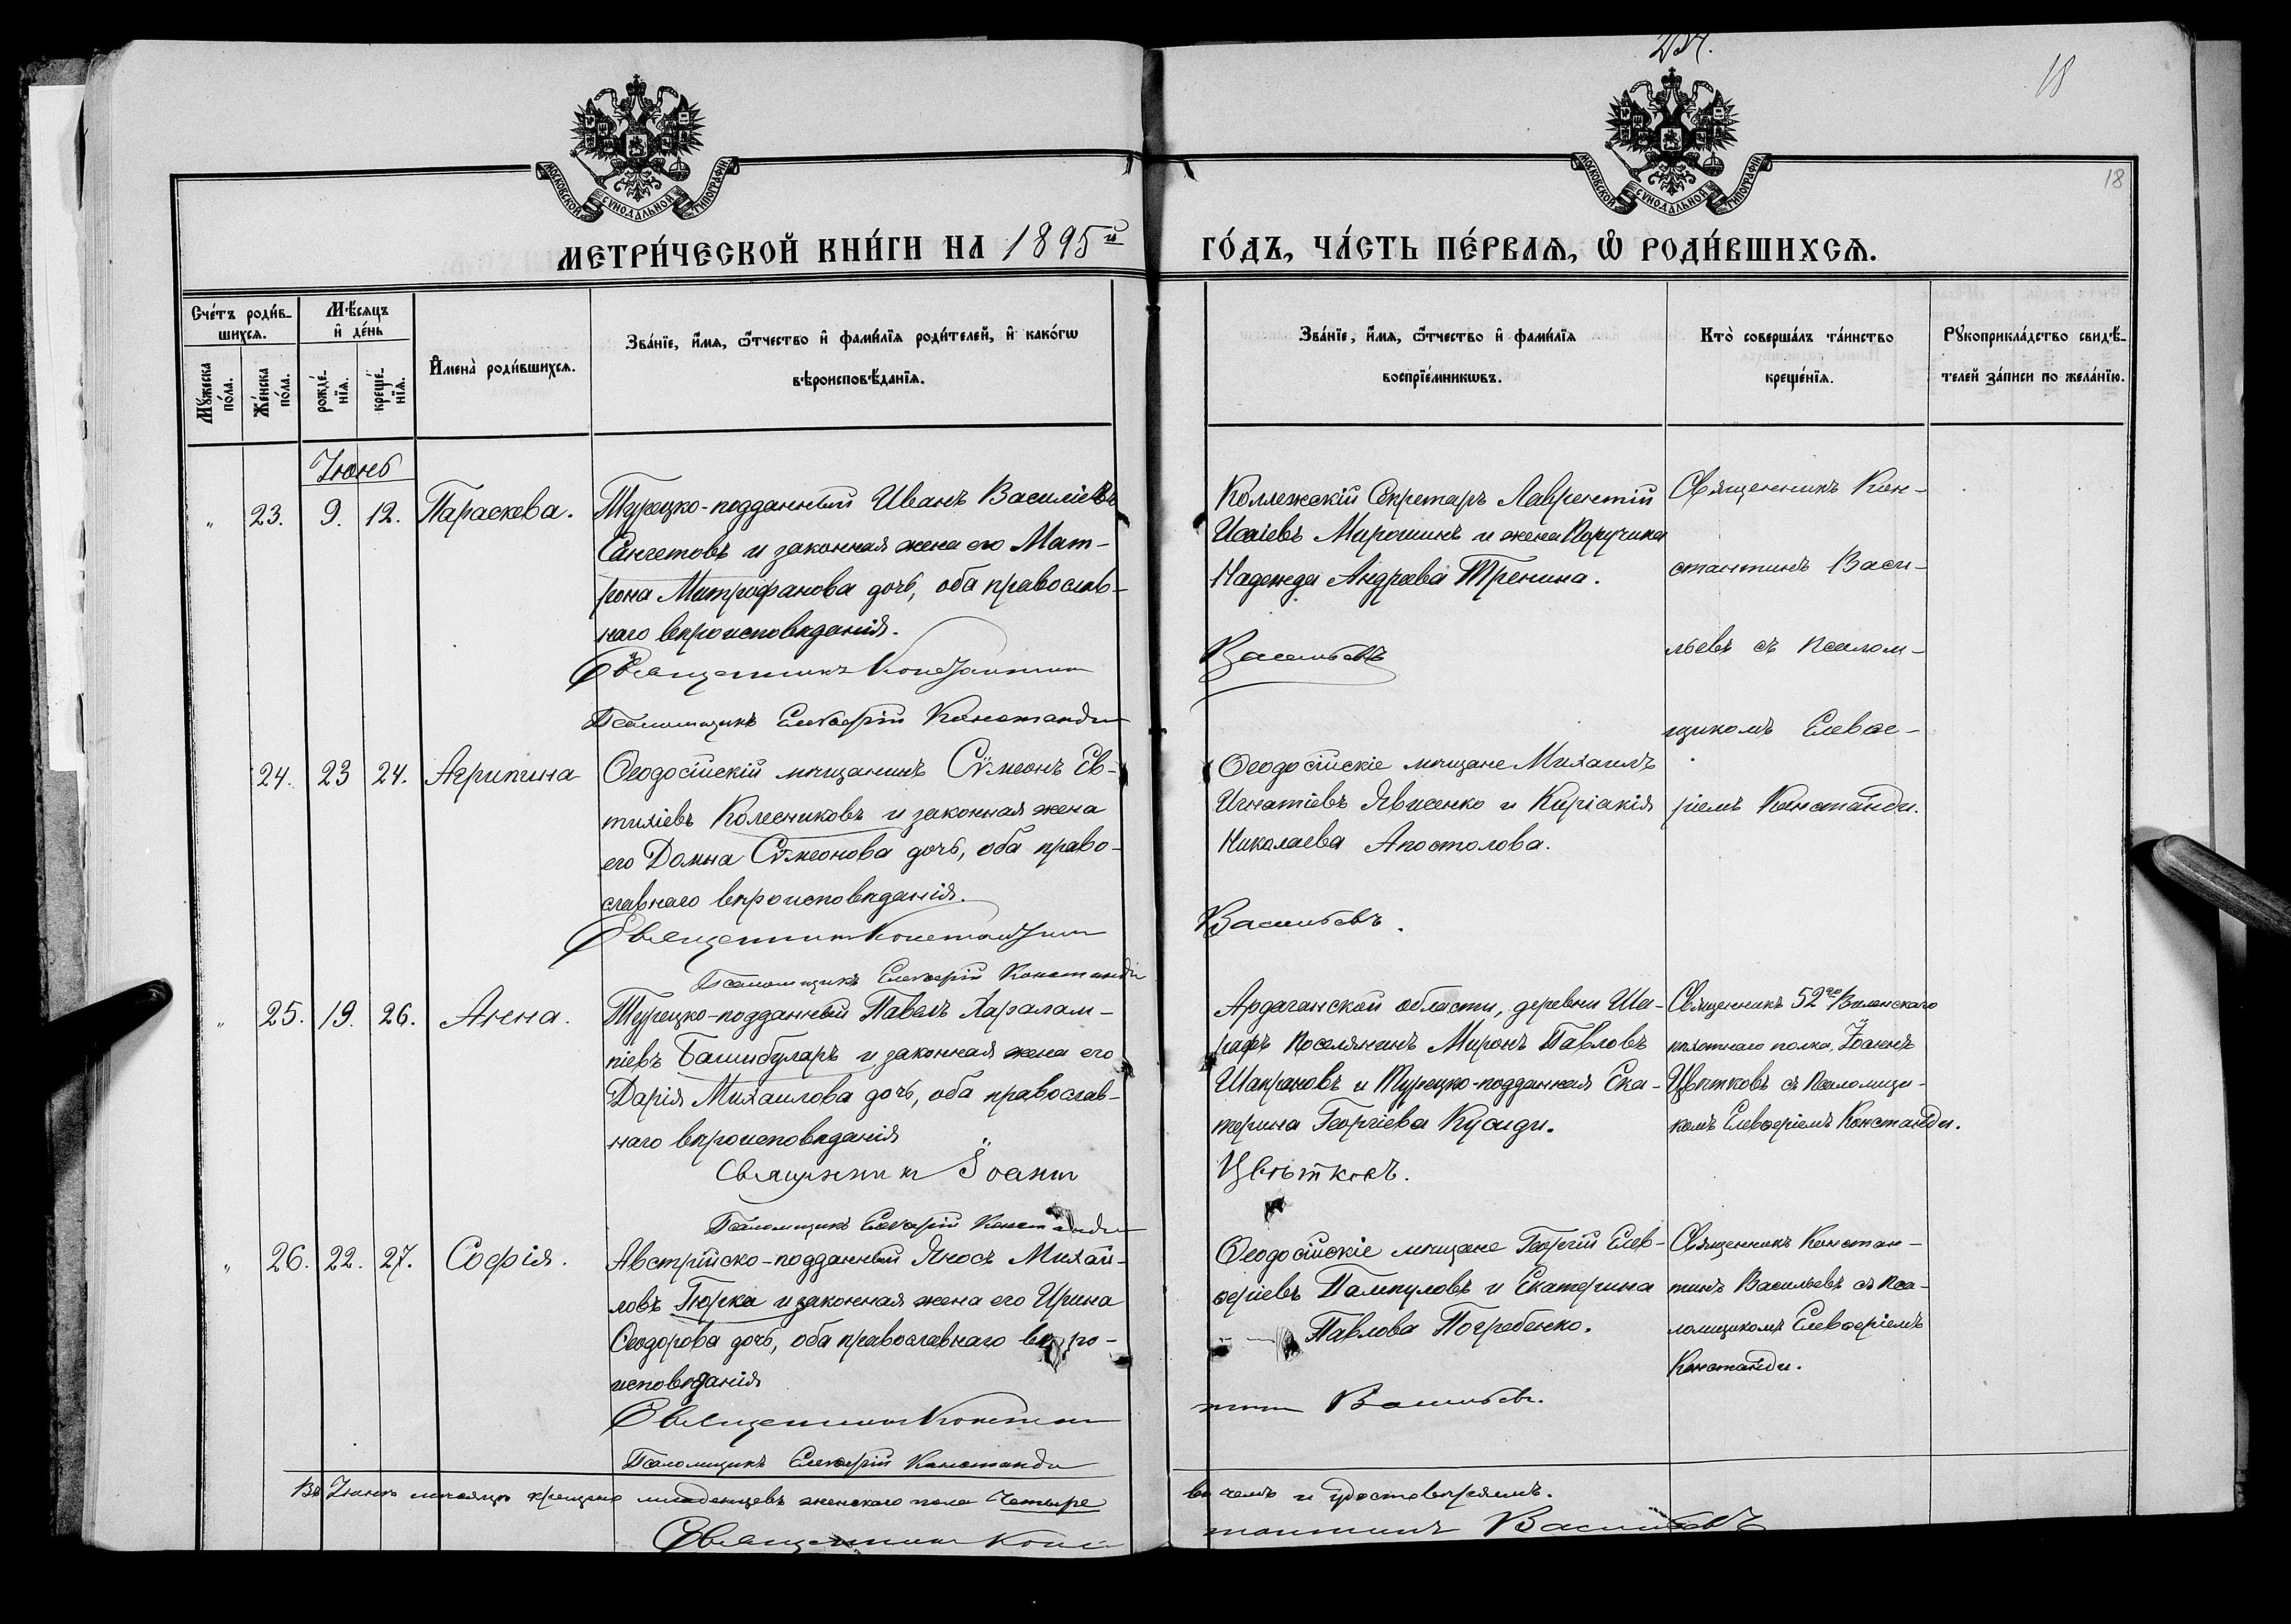 234.
18
18
МОСКОВСКОЙ СѴНОДАЛЬНОЙ ТИПОГРАФІИ
МОСКОВСКОЙ СѴНОДАЛЬНОЙ ТИПОГРАФІИ
МЕТРИ́ЧЕСКОЙ КНИ́ГИ НА 1895й
ГО́ДЪ, ЧА́СТЬ ПЕ́РВАѦ, Ѿ РОДИ́ВШИХСѦ.
Сче́тъ роди́в-
шихсѧ.
Мꙋ́жеска по́ла.
Же́нска по́ла.
Мѣ́сѧцъ
и҆ де́нь
рожде́-нїѧ.
креще́-нїѧ.
И҆мена̀ роди́вшихсѧ.
Зва́нїе, и҆́мѧ, ѻ҆́тчество и҆ фами́лїѧ роди́телей, и҆ како́гѡ
вѣроисповѣ́данїѧ.
Зва́нїе, и҆́мѧ, ѻ҆́тчество и҆ фами́лїѧ
воспрїе́мникѡвъ.
Кто̀ соверша́лъ та́инство
креще́нїѧ.
Рꙋкоприкла́дство свидѣ́-
телей за́писи по жела́нїю.
Іюнь
„ 23. 9. 12. Параскева.
Турецко-подданный Иванъ Василіевъ
и законная жена его Мат-
рона Митрофанова дочь, оба православ-
наго вѣроисповѣданія.
Священникъ Константинъ
Псаломщикъ Елевѳерій Константи
Коллежскій Секретарь Лаврентій
Исаіевъ Мирошинъ и жена Поручика
Надежда Андреева Тренина.
Васильевъ
Священникъ Кон-
стантинъ Васи-
льевъ съ псалом-
щикомъ Елевѳе-
ріемъ Константи.
24. 23 24. Агрипина
Ѳеодосійскій мѣщанинъ Сѵмеонъ Ев-
тихіевъ Колесниковъ и законная жена
его Домна Сѵмеонова дочь, оба право-
славнаго вѣроисповѣданія.
Священникъ Константинъ
Псаломщикъ Елевѳерій Константи
Ѳеодосійскіе мѣщане Михаилъ
Игнатіевъ Явисенко и Киріакія
Николаева Апостолова.
Васильевъ.
„ 25. 19. 26. Анна.
Турецко-подданный Павелъ Харалам-
піевъ Башибуларъ и законная жена его
Дарія Михаилова дочь, оба православ-
наго вѣроисповѣданія
Священникъ Іоаннъ
Псаломщикъ Елевѳерій Константи
Ардаганской области, деревни Ша-
рафъ поселянинъ Миронъ Павловъ
Шапрановъ и Турецко-подданная Ека-
терина Георгіева
Цвѣтковъ.
Священникъ 52го Виленскаго
пѣхотнаго полка, Іоаннъ
Цвѣтковъ съ псаломщи-
комъ Елевѳеріемъ Константи.
„ 26. 22. 27. Софія.
Австрійско-подданный Яносъ Михай-
ловъ Гюрка и законная жена его Ирина
Ѳеодорова дочь, оба православнаго вѣро-
исповѣданія
Священникъ Констан
Псаломщикъ Елевѳерій Константи
Ѳеодосійскіе мѣщане Георгій Елев-
ѳеріевъ Пампуловъ и Екатерина
Павлова Погребенко.
тинъ Васильевъ.
Священникъ Констан-
тинъ Васильевъ съ пса-
ломщикомъ Елевѳеріемъ
Константи.
Въ Іюнѣ мѣсяцѣ крещено младенцевъ женскаго пола четыре
въ чемъ и удостовѣряемъ.
Священникъ Конс
тантинъ Васильевъ